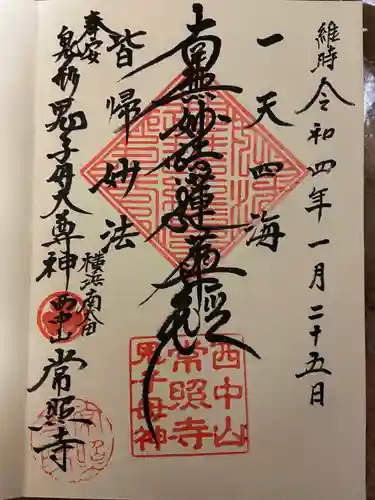 維時
令和四年一月二十五日
一天四海
南無妙法蓮華経
皆帰妙法
奉安
鬼形鬼子母大尊神
横浜南谷
西中山
常照寺
西中山
常照寺
鬼子母神